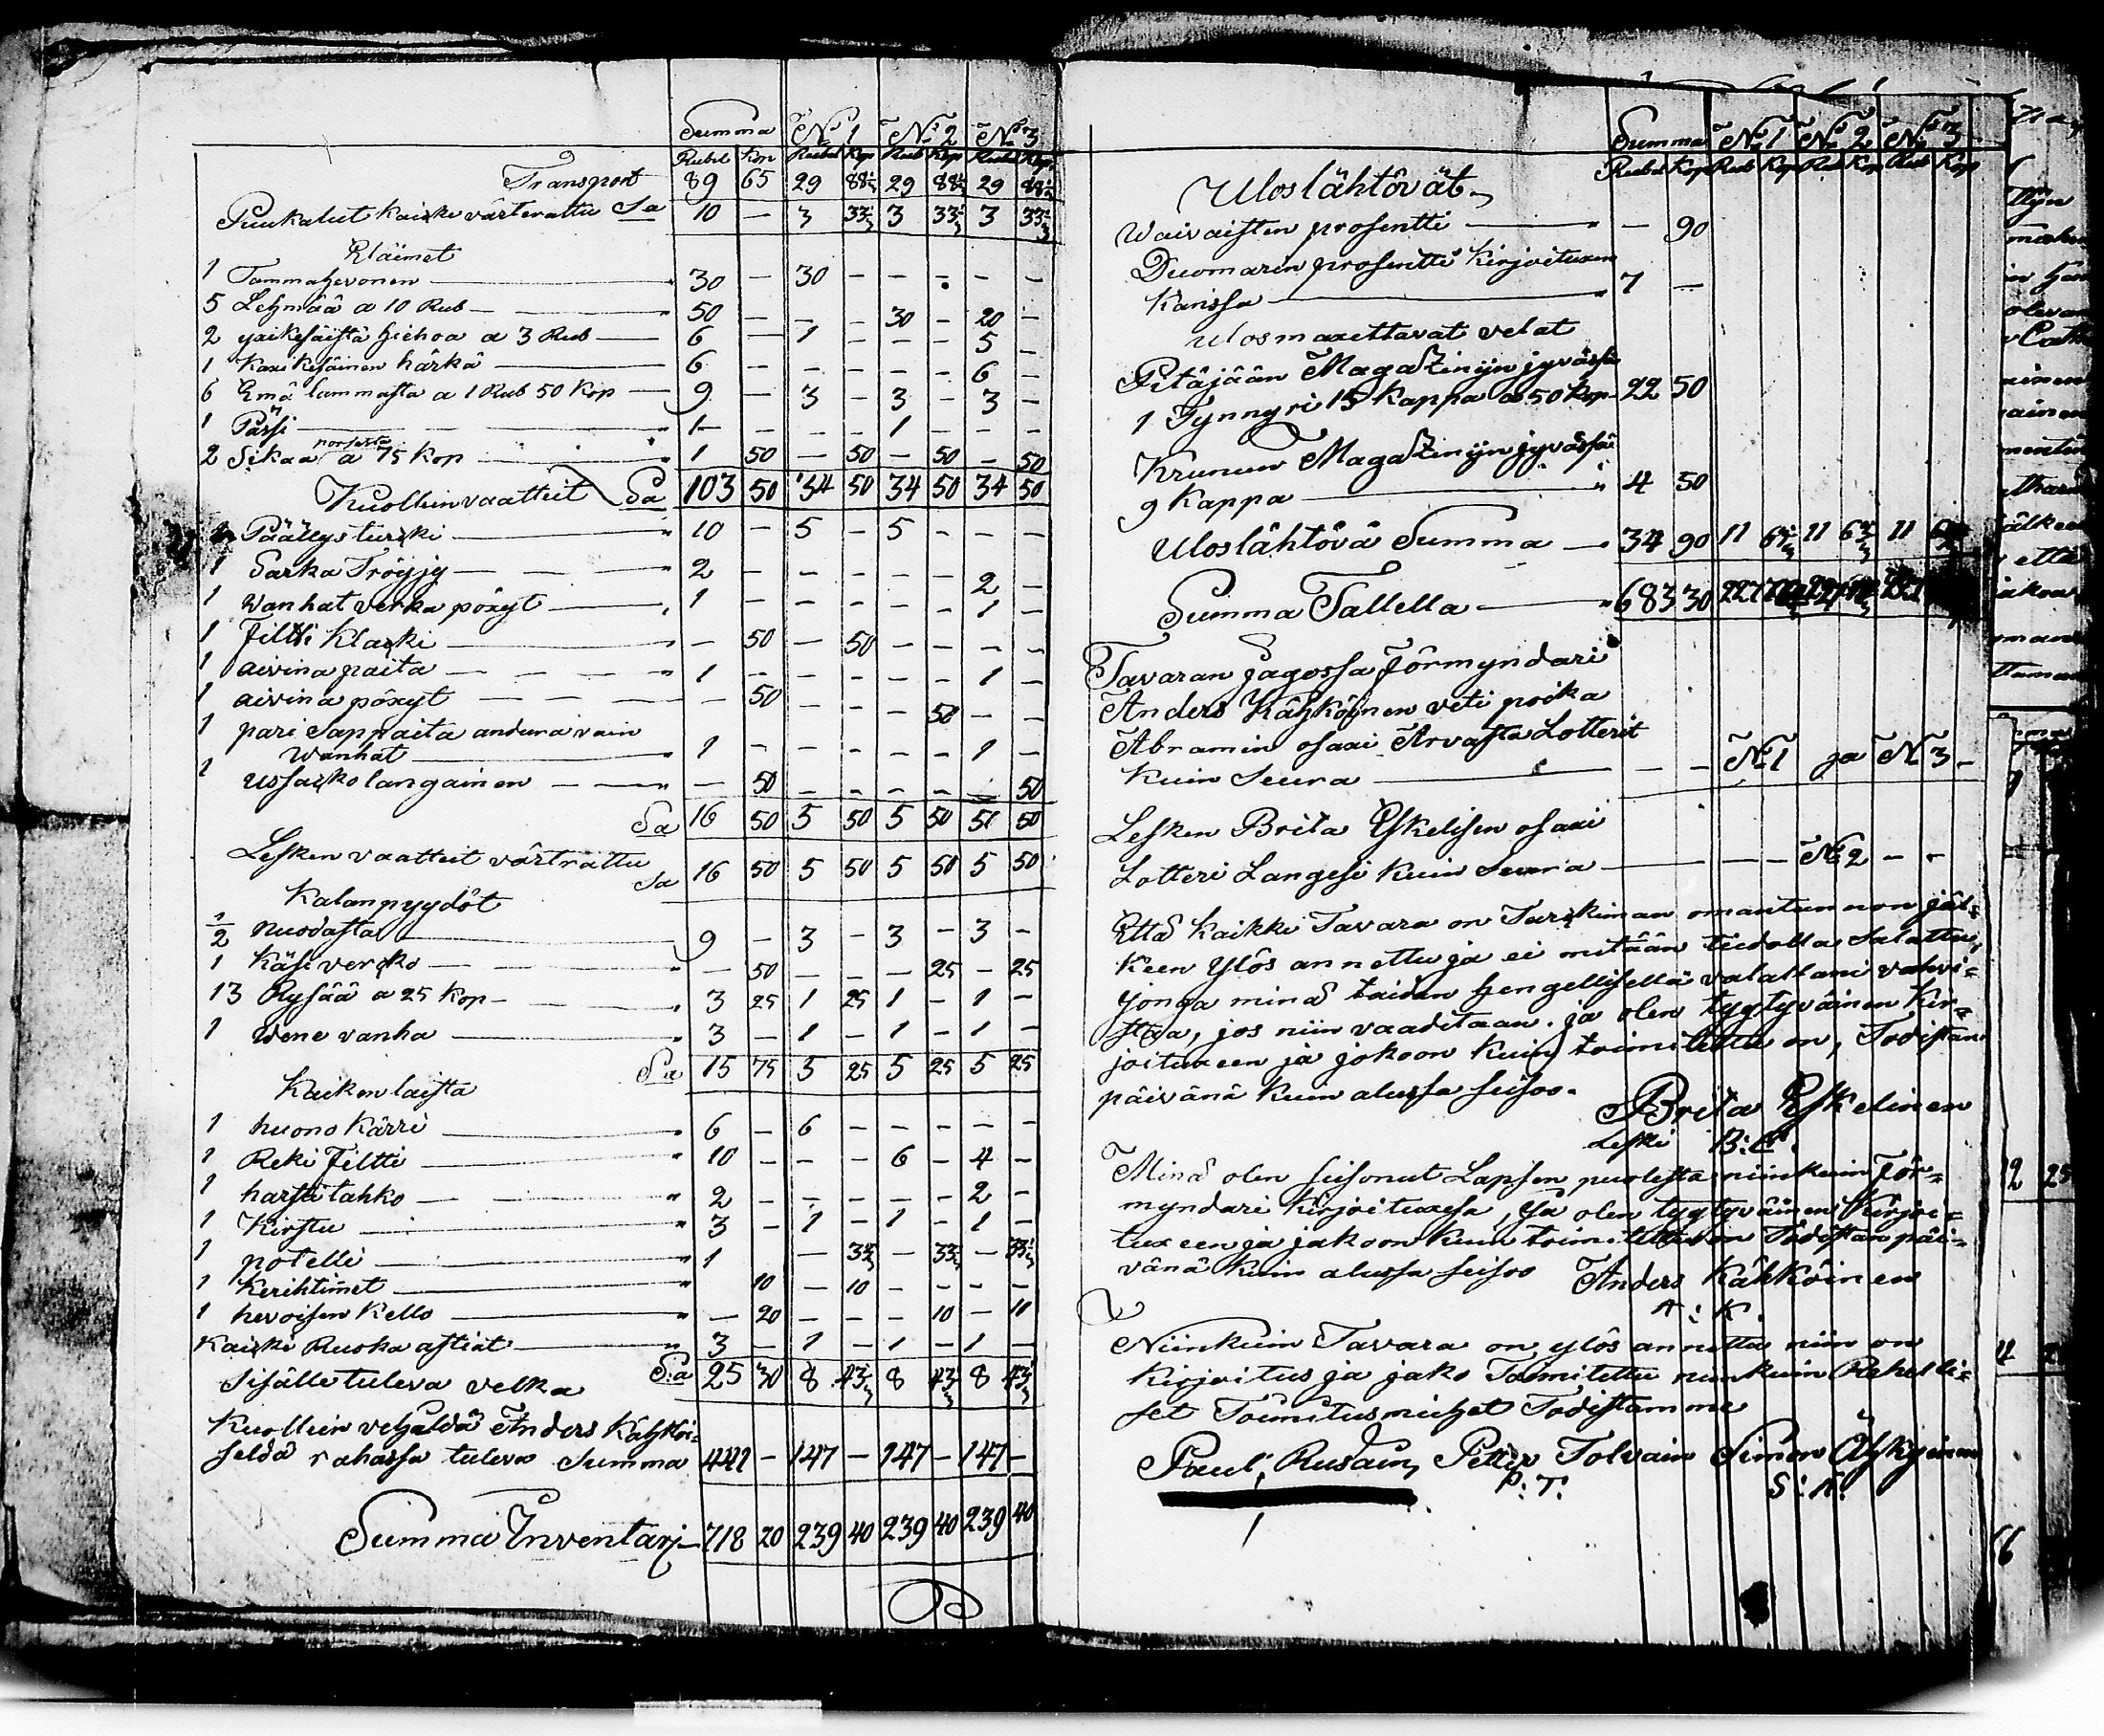 Summa No 1 No 2 No 3
Rubel Kop Rubel Kop Rub Kop Rubel Kop
Transport 89 65 29 88⅓ 29 88⅓ 29 88⅓
Puukalut Kaicki värterattu Sa 10 — 3 33⅓ 3 33⅓ 3 33⅓
Eläimet
1 Tammahevonen — 30 — 30 — — — — —
5 Lehmää a 10 Rub — 50 — — — 30 — 20 —
2 yxikesäistä hiehoa a 3 Rub — 6 — 1 — — — 5 —
1 Kaxikesäinen härkä — 6 — — — — — 6 —
6 Emä lammasta a 1 Rub 50 Kop — 9 — 3 — 3 — 3 —
1 Pässi — 1 — — — 1 — — —
2 Sikaa porsasta a 75 Kop — 1 50 — 50 — 50 — 50
Kuolluin vaatteit Sa 103 50 34 50 34 50 34 50
1 Päällys turcki — 10 — 5 — 5 — — —
1 Sarka Tröyjy — 2 — — — — — 2 —
1 Wanhat verka pöxyt — 1 — — — — — 1 —
1 Filtti Klacki — — 50 — 50 — — — —
1 aivina paita — 1 — — — — — 1 —
1 aivina pöxyt — — 50 — — — 50 — —
1 pari Sappaita
Wanhat — 1 — — — — — 1 —
1 ussacko langainen — — 50 — — — — — 50
Sa 16 50 5 50 5 50 5 50
Lesken vaatteit värtrattu Sa 16 50 5 50 5 50 5 50
Kalanpyydöt
½ nuodasta — 9 — 3 — 3 — 3 —
1 Käsi vercko — — 50 — — — 25 — 25
13 Rysää a 25 Kop — 3 25 1 25 1 — 1 —
1 Wene vanha — 3 — 1 — 1 — 1 —
Sa 15 75 5 25 5 25 5 25
Kaikenlaista
1 huono Kärri — 6 — 6 — — — — —
1 Reki Filtti — 10 — — — 6 — 4 —
1 tahko — 2 — — — — — 2 —
1 Kirstu — 3 — 1 — 1 — 1 —
1 potelli — 1 — 33⅓ — 33⅓ — 33⅓
1 Kerihtimet — 10 — 10 — — — —
1 hevoisen Kello — — 20 — — — 10 — 10
Kaicki Ruoka astiat — 3 — 1 — 1 — 1 —
Sisälle tuleva velka Sa 25 30 8 43⅓ 8 43⅓ 8 43⅓
Kuolluin veljeldä Anders Kähköi-
seldä rahassa tuleva Summa 441 — 147 — 147 — 147 —
Summa Inventarj — 718 20 239 40 239 40 239 40
Summa No 1 No 2 No 3
Rubel Kop Rub Kop Rub Kop Rub Kop
Uloslähtövät
Waivaisten prosentti — — 90
Duomarin prosentti Kirjoituxen
Kanssa — 7 —
Ulosmaxettavat velat
Pitäjään Magaszinijn jyvässä
1 Tynnyri 15 Kappa a 50 Kop — 22 50
Krunun Magaszinijn jyvässä
9 Kappa — 4 50
Uloslähtövä Summa — 34 90 11 11 11
Summa Tallella — 683 30
Tavaran jagossa Förmyndari
Anders Kähköinen veti poika
Abramin osaxi Arvasta Lotterit
Kuin Seura — — — No 1 ja No 3 —
Lesken Brita Eskelisen osaxi
Lotteri Langesi Kuin Seura — — — No 2 — —
Että Kaikki Tavara on Tarckiman omantunnon jäl-
keen Ylös annettu ja ei mitään tiedolla salattu,
jonga minä taidan hengellisellä valallani vahvi-
staa, jos niin vaaditaan. ja olen tyytyväinen Kir-
joituxeen ja jakoon Kuin toimitettu on, Todistan
päivänä Kuin alussa seisoo.
Brita Eskelinen
Leski B: E:
Minä olen seisonut Lapsen puolesta niinkuin För-
myndari Kirjoituxesa, Ja olen tyytyväinen Kirjoi-
tuxeen ja jakoon Kuin toimitettu on Todistan päi-
vänä Kuin alussa seisoo Anders Kähköinen
A: K:
Niinkuin Tavara on ylös annettu niin on
Kirjoitus ja jako Toimitettu niinkuin Rehelli-
set Toimitusmiehet Todistamme
Paul Rusain, Petter Tolvain Simon
P: T: S: K: